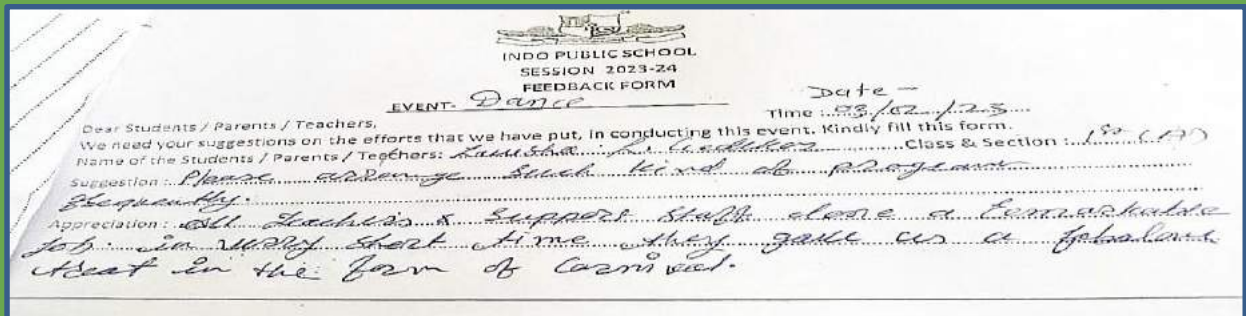 INDO PUBLIC SCHOOL
SESSION 2023-24
FEEDBACK FORM
Date -
EVENT- Dance
Time : 03/02/23
Dear Students / Parents / Teachers,
We need your suggestions on the efforts that we have put, in conducting this event. Kindly fill this form.
Name of the Students / Parents / Teachers: Class & Section : 1st (A)
Suggestion : Please arrange such kind of program
frequently.
Appreciation : All teachers & support staff done a remarkable
job. in very short time they gave us a
treat in the form of Carnival.